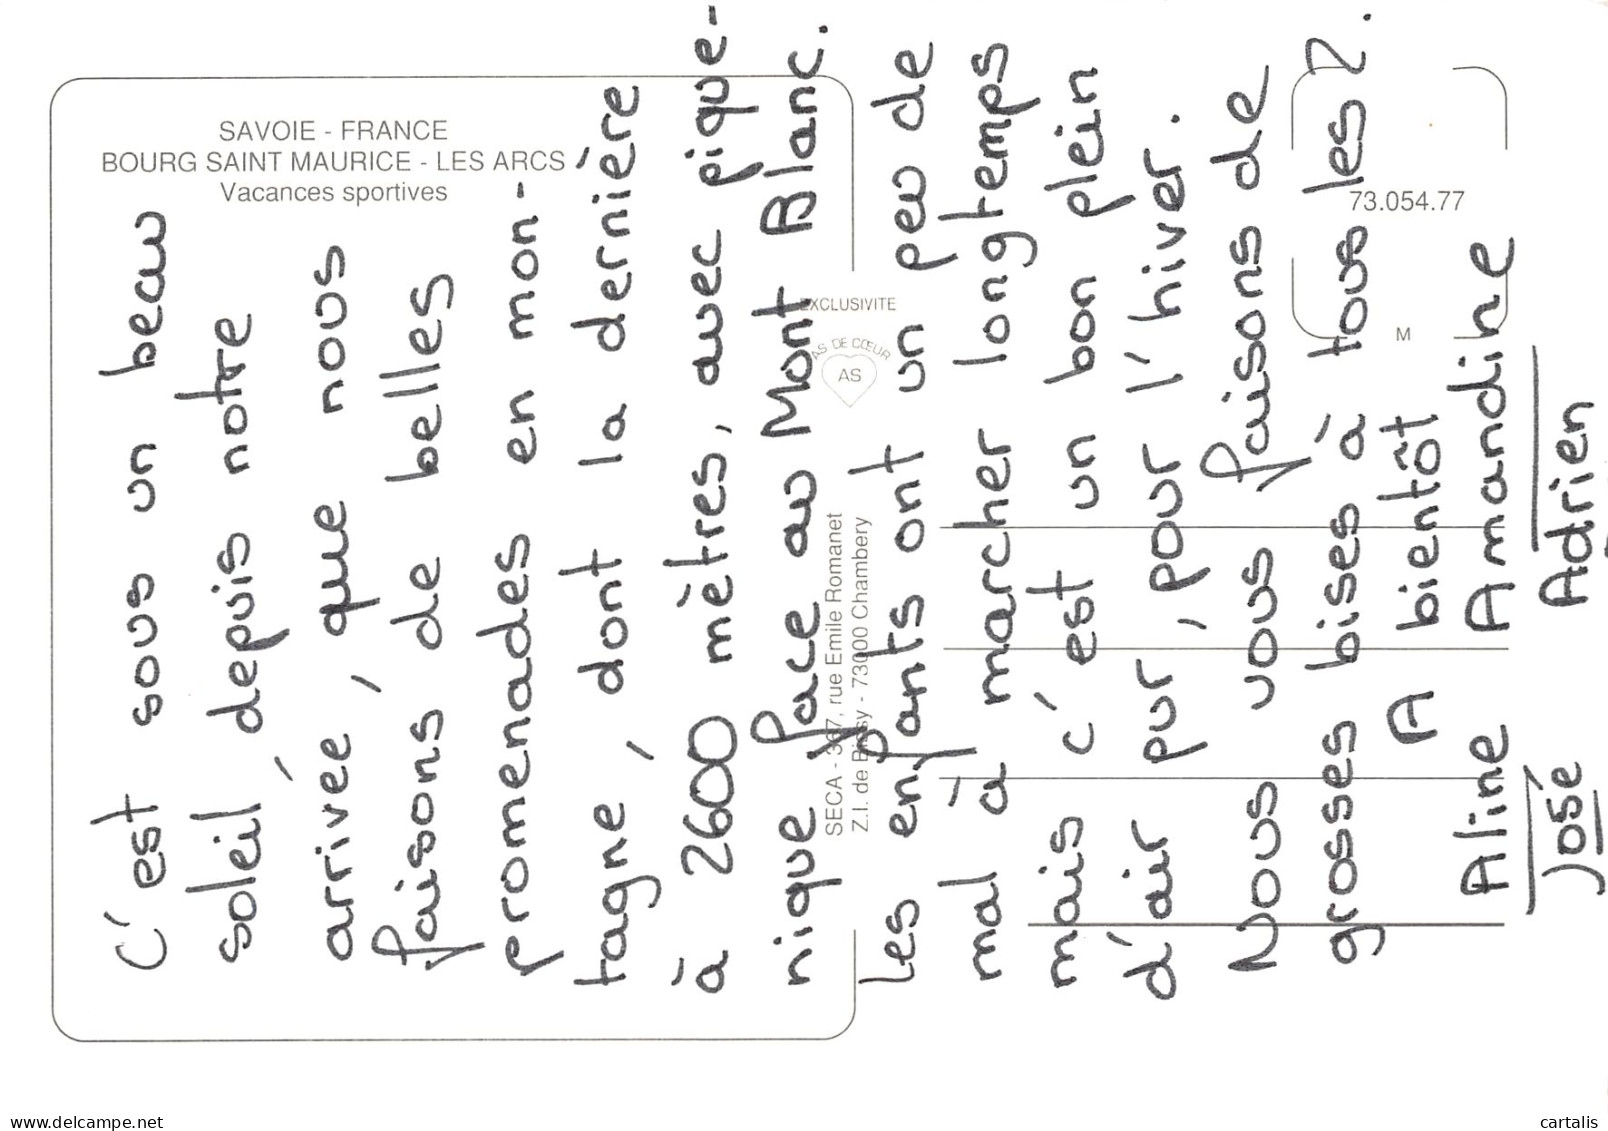 SAVOIE - FRANCE
BOURG SAINT MAURICE - LES ARCS
Vacances sportives
73.054.77
M
EXCLUSIVITE
AS DE CŒUR
AS
SECA - 367, rue Emile Romanet
Z.I. de Bissy - 73000 Chambery
C'est sous un beau
soleil, depuis notre
arrivée, que nous
faisons de belles
promenades en mon-
tagne, dont la dernière
à 2600 mètres, avec pique-
nique face au Mont Blanc.
Les enfants ont un peu de
mal à marcher longtemps
mais c'est un bon plein
d'air pur, pour l'hiver.
Nous vous faisons de
grosses bises à tous les 2.
A bientôt
Aline Amandine
José Adrien
delcampe.net
cartalis